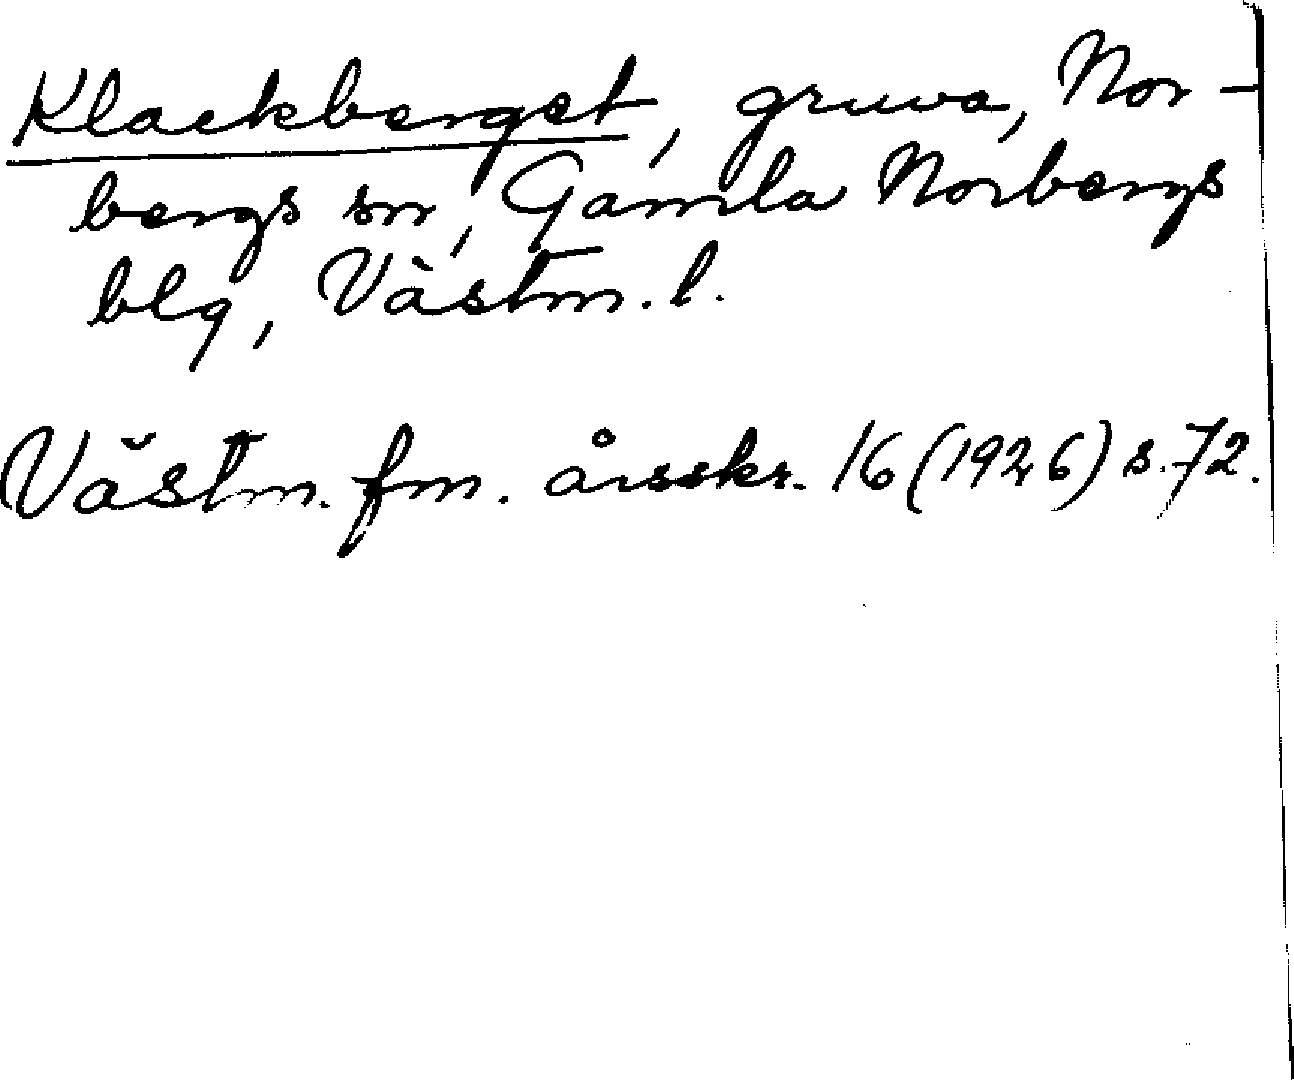 Klackberget, gruva, Nor-
bergs sn, Gamla Norbergs
blg, Västm. l.
Västm. fm. årsskr. 16 (1926) s. 72.